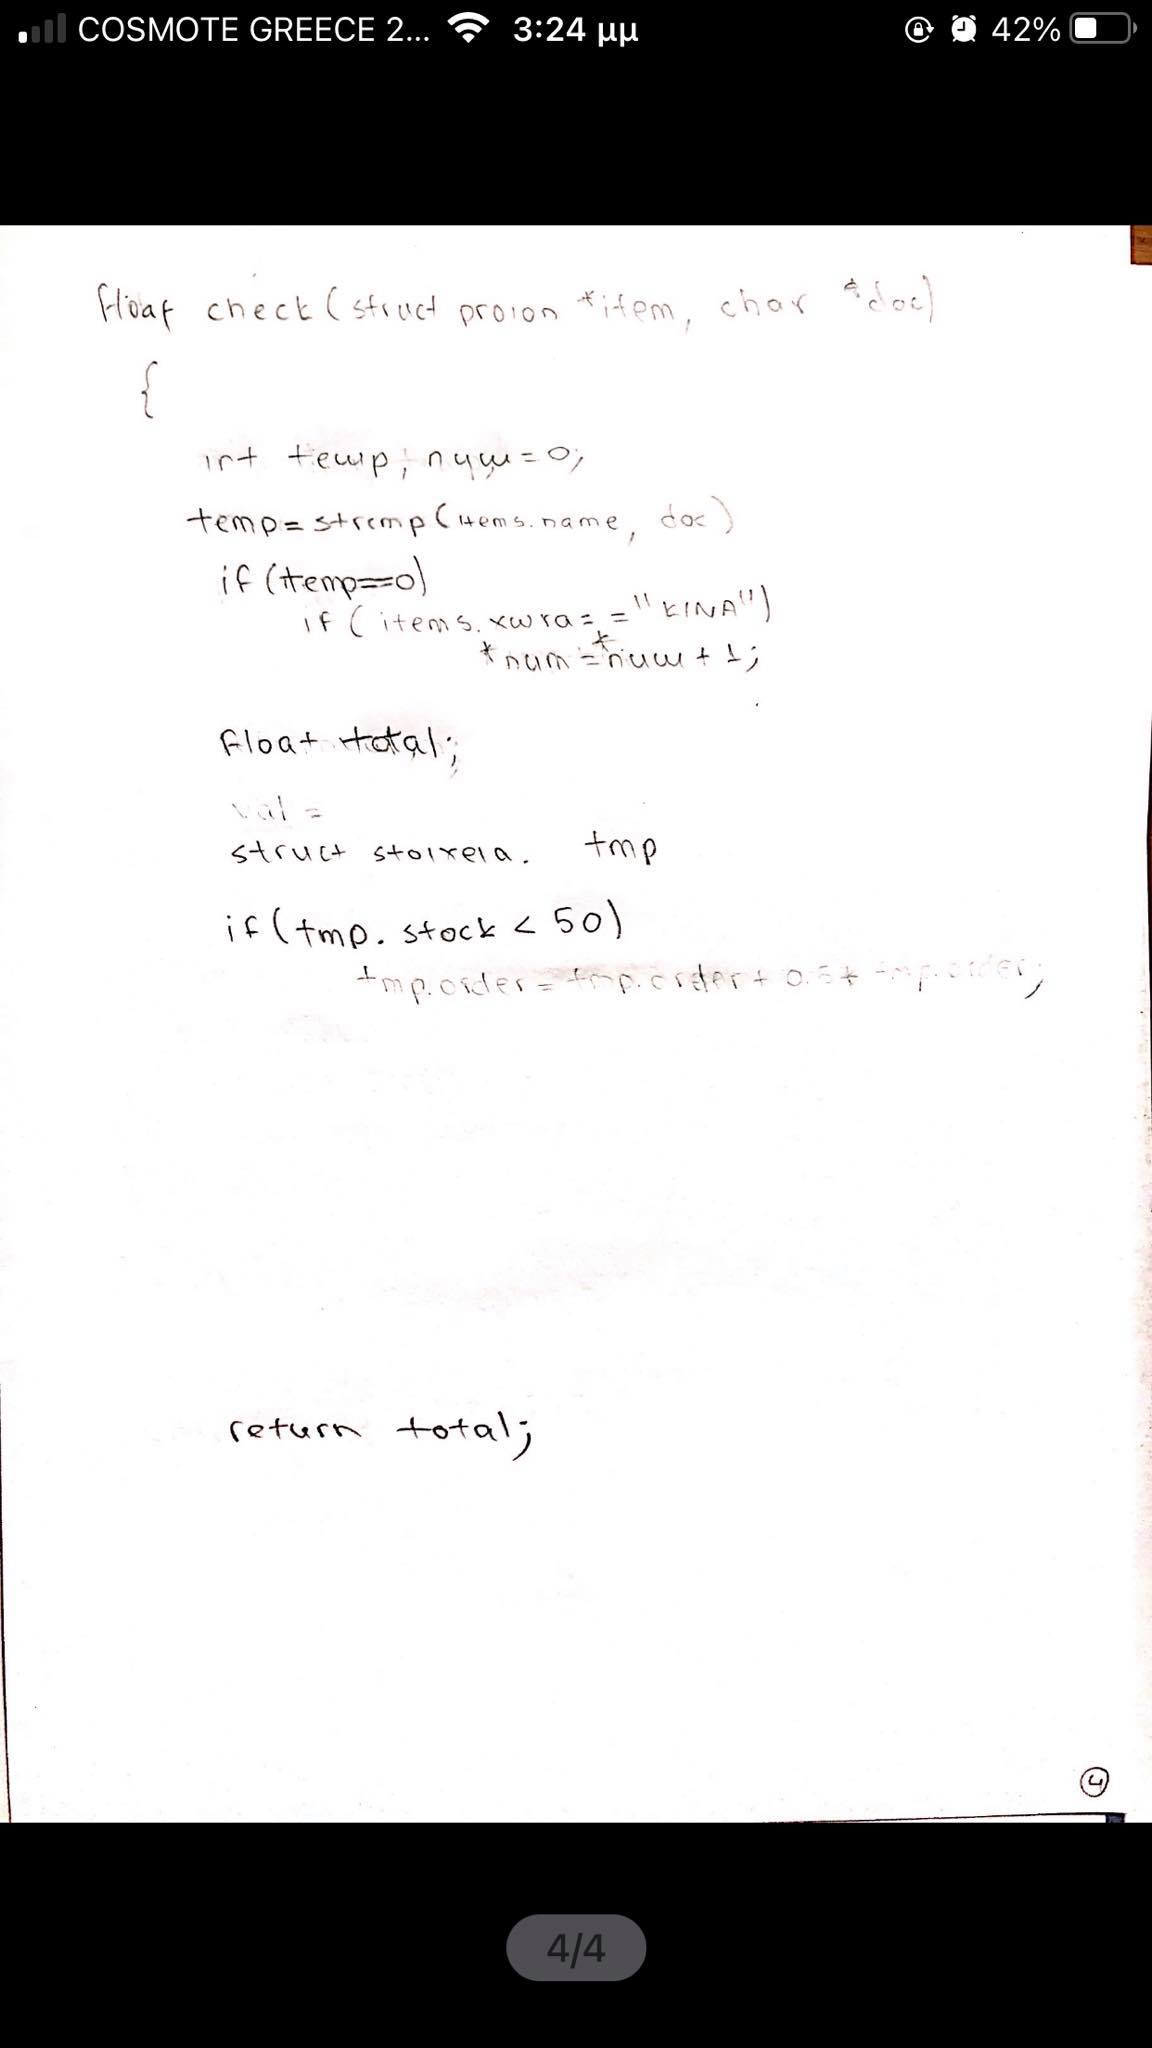 COSMOTE GREECE 2... 3:24 μμ 42%
float check(struct proion *item, char *doc)
{
int temp, num=0;
temp=strcmp(items.name, doc)
if(temp==0)
if(items.xwra=="KINA")
*num=*num+1;
float total;
val =
struct stoixeia. tmp
if(tmp.stock<50)
tmp.order=tmp.order+0.5*tmp.order;
return total;
4
4/4